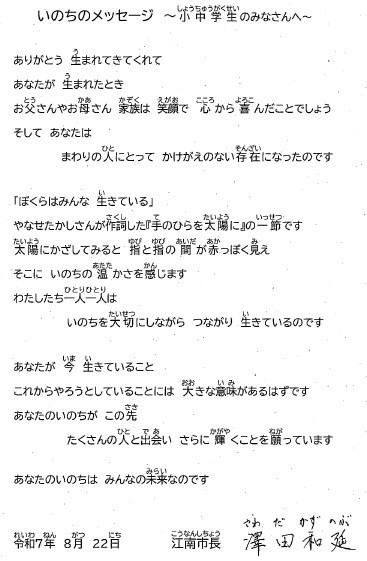 いのちのメッセージ ～小中学生のみなさんへ～
ありがとう 生まれてきてくれて
あなたが 生まれたとき
お父さんやお母さん 家族は 笑顔で 心から喜んだことでしょう
そして あなたは
まわりの人にとって かけがえのない存在になったのです
「ぼくらはみんな 生きている」
やなせたかしさんが作詞した『手のひらを太陽に』の一節です
太陽にかざしてみると 指と指の間が赤っぽく見え
そこに いのちの温かさを感じます
わたしたち一人一人は
いのちを大切にしながら つながり 生きているのです
あなたが 今 生きていること
これからやろうとしていることには 大きな意味があるはずです
あなたのいのちが この先
たくさんの人と出会い さらに輝くことを願っています
あなたのいのちは みんなの未来なのです
令和7年 8月 22日 江南市長 澤田和延